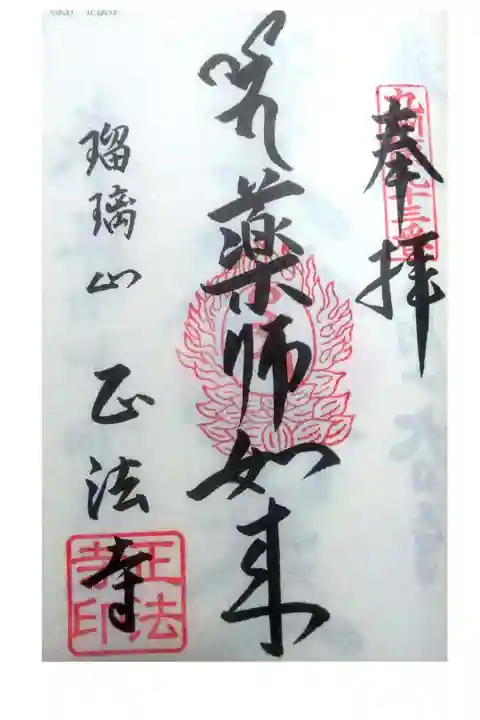 奉拝
薬師如来
瑠璃山 正法寺
正法寺印